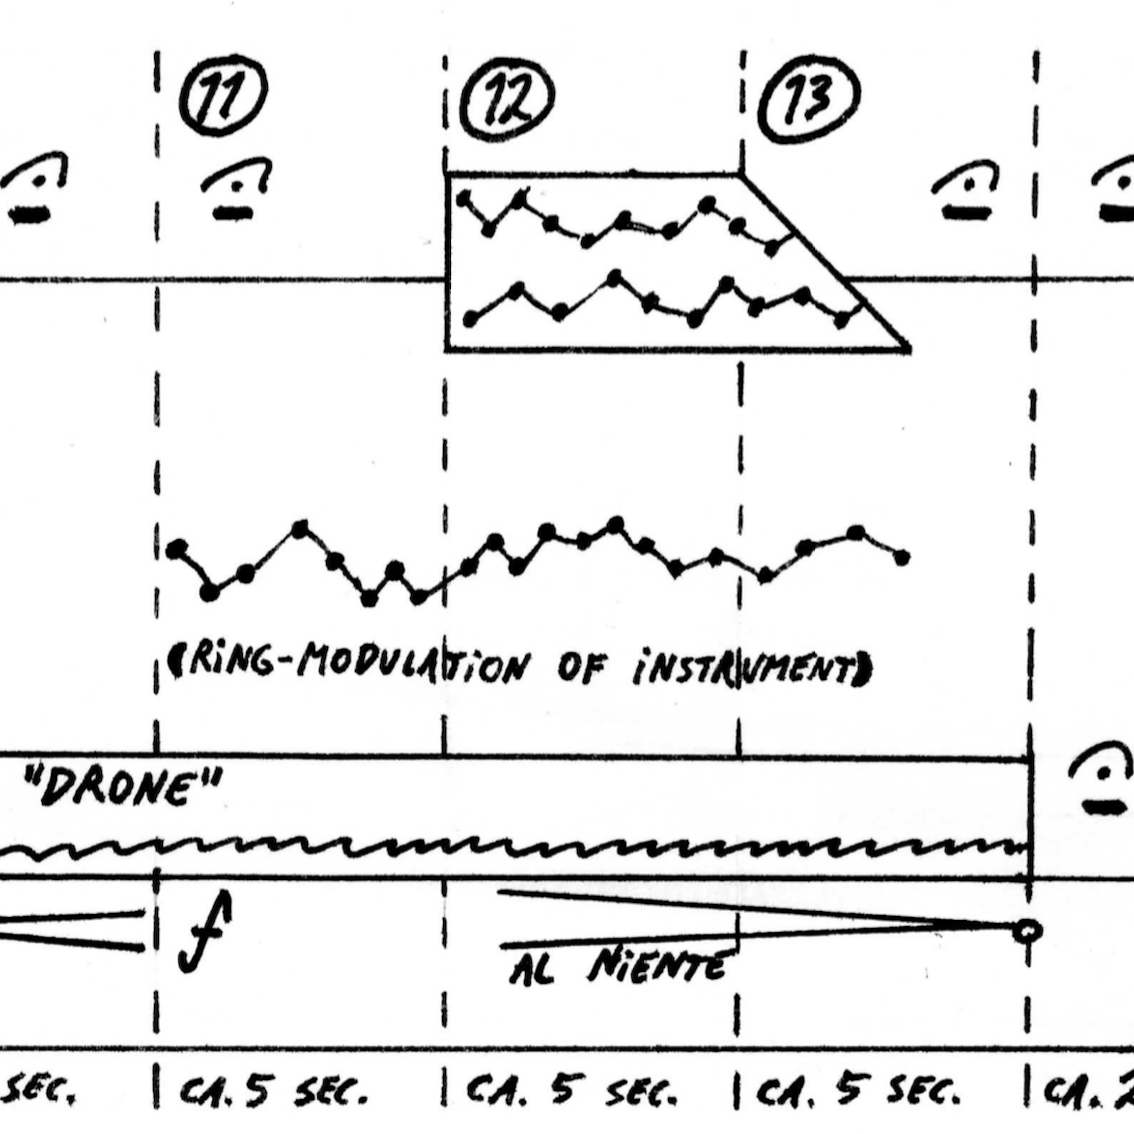 11 12 13
(RiNG-MODULATiON OF iNSTRUMENT)
"DRONE"
f
AL NiENTE
SEC. CA. 5 SEC. CA. 5 SEC. CA. 5 SEC. CA. 2